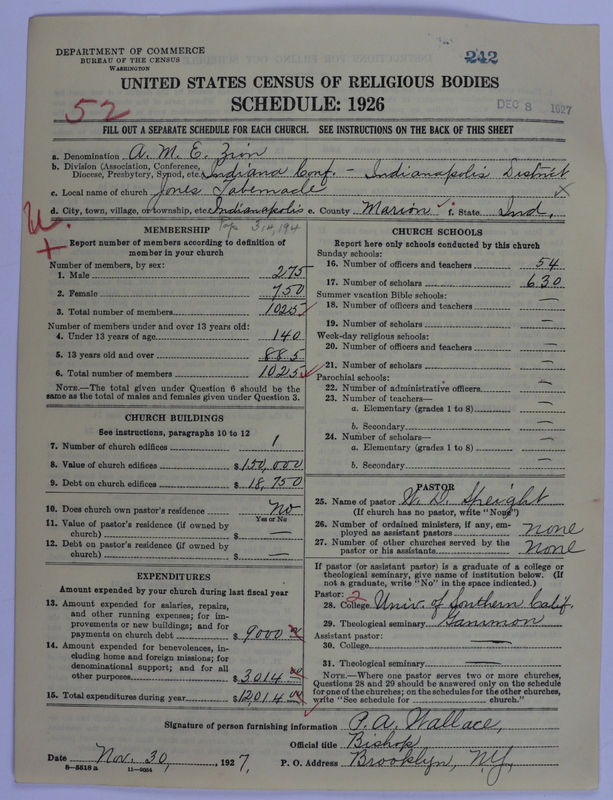 DEPARTMENT OF COMMERCE
BUREAU OF THE CENSUS
WASHINGTON
242
UNITED STATES CENSUS OF RELIGIOUS BODIES
SCHEDULE: 1926
52
DEC 8 1927
FILL OUT A SEPARATE SCHEDULE FOR EACH CHURCH. SEE INSTRUCTIONS ON THE BACK OF THIS SHEET
a. Denomination A. M. E. Zion
b. Division (Association, Conference, Diocese, Presbytery, Synod, etc. Indiana Conf. - Indianapolis District
c. Local name of church Jones Tabernacle X
d. City, town, village, or township, etc. Indianapolis e. County Marion f. State Ind.
U. +
Pop 314,194
MEMBERSHIP
Report number of members according to definition of
member in your church
Number of members by sex:
1. Male 275
2. Female 750
3. Total number of members 1025
Number of members under and over 13 years old:
4. Under 13 years of age 140
5. 13 years old and over 885
6. Total number of members 1025
NOTE.—The total given under Question 6 should be
same as the total of males and females given under Question 3.
CHURCH BUILDINGS
See instructions, paragraphs 10 to 12
7. Number of church edifices 1
8. Value of church edifices $150,000
9. Debt on church edifices $18,750
10. Does church own pastor's residence No
Yes or No
11. Value of pastor's residence (if owned by
church) $ —
12. Debt on pastor's residence (if owned by
church) $ —
EXPENDITURES
Amount expended by your church during last fiscal year
13. Amount expended for salaries, repairs,
and other running expenses; for im-
provements or new buildings; and for
payments on church debt $9000
14. Amount expended for benevolences, in-
cluding home and foreign missions; for
denominational support; and for all
other purposes $3014 00
15. Total expenditures during year $12014 00
CHURCH SCHOOLS
Report here only schools conducted by this church
Sunday schools:
16. Number of officers and teachers 54
17. Number of scholars 630
Summer vacation Bible schools:
18. Number of officers and teachers —
19. Number of scholars —
Week-day religious schools:
20. Number of officers and teachers —
21. Number of scholars —
Parochial schools:
22. Number of administrative officers —
23. Number of teachers—
a. Elementary (grades 1 to 8) —
b. Secondary —
24. Number of scholars—
a. Elementary (grades 1 to 8) —
b. Secondary —
PASTOR
25. Name of pastor W. D. Speight
(If church has no pastor, write "None")
26. Number of ordained ministers, if any, em-
ployed as assistant pastors none
27. Number of other churches served by the
pastor or his assistants None
If pastor (or assistant pastor) is a graduate of a college or
theological seminary, give name of institution below. (If
not a graduate, write "No" in the space indicated.)
Pastor: 2
28. College Univ. of Southern Calif.
29. Theological seminary Gammon
Assistant pastor:
30. College —
31. Theological seminary —
NOTE.—Where one pastor serves two or more churches,
Questions 28 and 29 should be answered only on the schedule
for one of the churches; on the schedules for the other churches,
write "See schedule for church."
Signature of person furnishing information P. A. Wallace,
Official title Bishop
Date Nov. 30, 1927, P. O. Address Brooklyn, N.Y.,
8—5518 a 11—9064